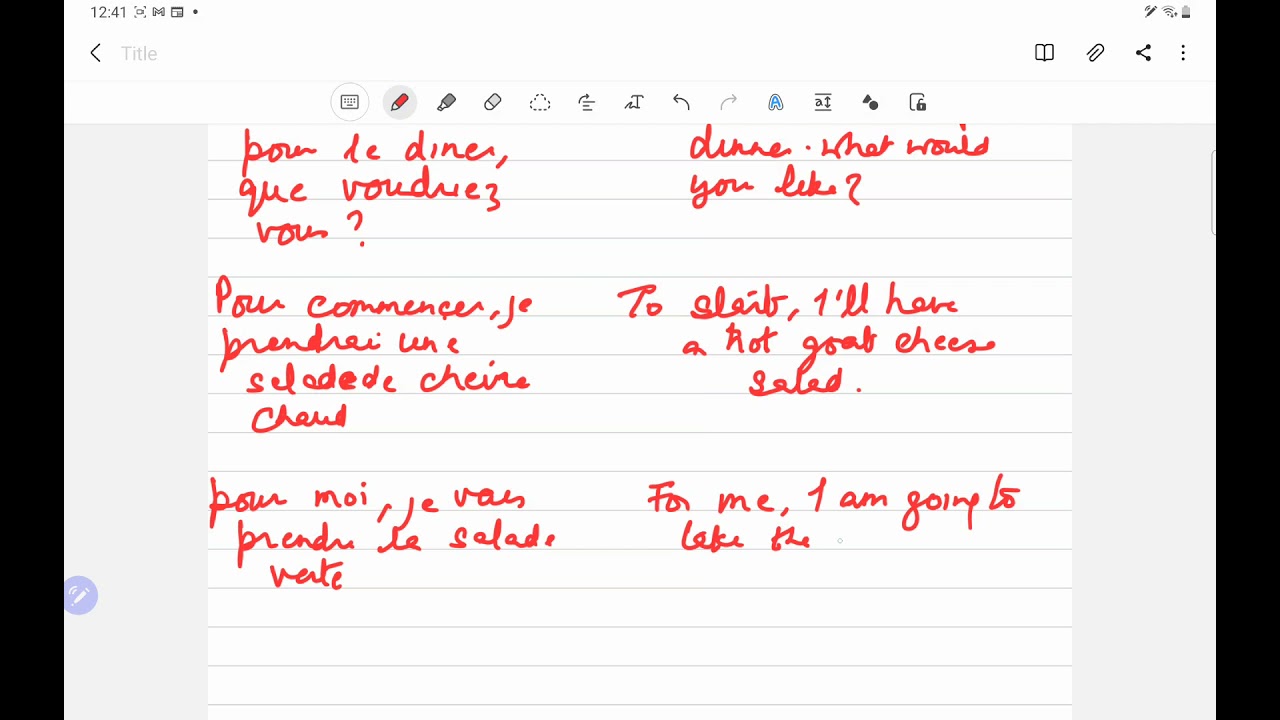 12:41
Title
pour le diner,
que voudriez
vous ?
dinner. what would
you like?
Pour commençer, je
prendrai une
salade de chèvre
chaud
To start, I'll have
a hot goat cheese
salad.
pour moi, je vais
prendre la salade
verte
For me, I am going to
take the